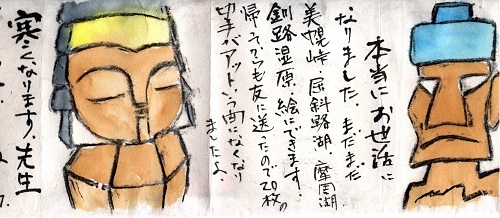 本当にお世話に
なりました。まだまだ
美幌峠 屈斜路湖 摩周湖
釧路湿原、絵にできます。
帰ってからも友に送ったので20枚の
切手がアットいう間になくなり
ましたよ。
寒くなります。先生